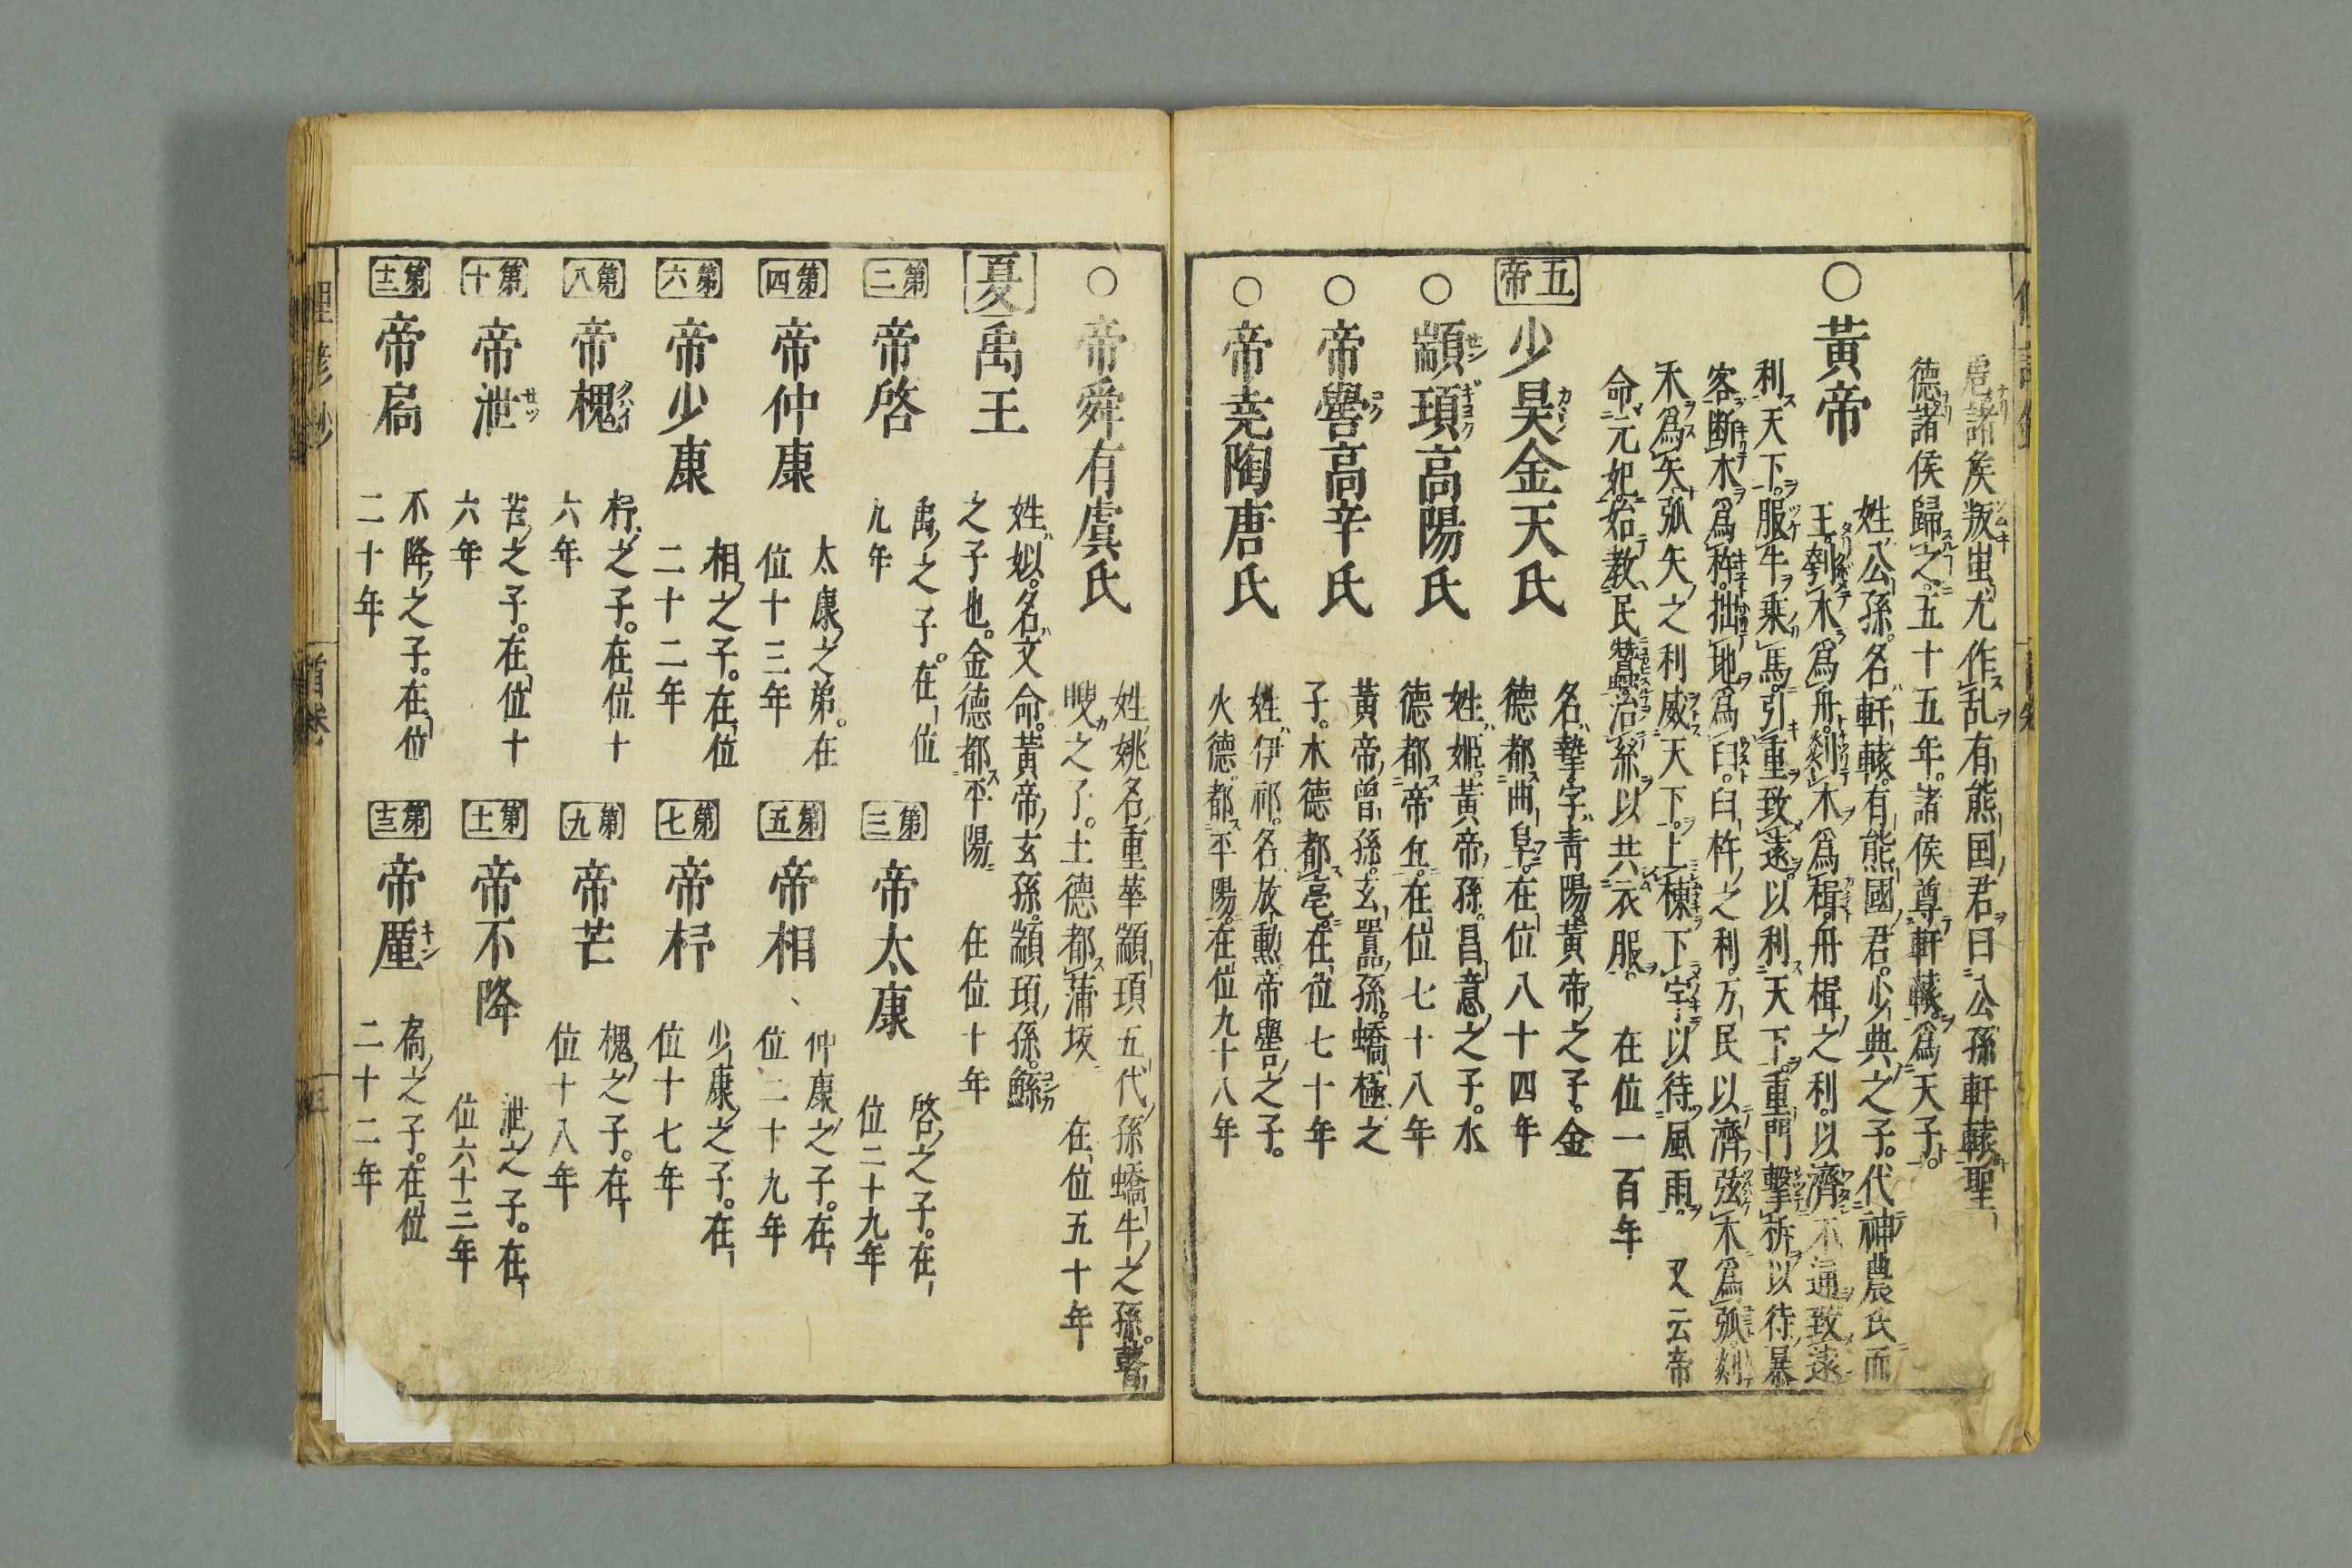 虐諸矦叛蚩尤作乱有熊国君曰公孫軒轅聖
德諸侯歸之五十五年諸侯尊軒轅爲天子
○黃帝
姓公孫名軒轅有熊國君少典之子代神農氏而
王刳木爲舟剡木爲楫舟楫之利以濟不通致遠
利天下服牛乘馬引重致遠以利天下重門擊柝以待暴
客断木爲杵掘地爲臼臼杵之利万民以濟弦木爲弧剡
木爲矢弧矢之利威天下上棟下宇以待風雨 又云帝
命元妃始教民蠶治絲以共衣服 在位一百年
五帝
少昊金天氏
名摯字青陽黃帝之子金
德都曲阜在位八十四年
○顓頊高陽氏
姓姬黃帝孫昌意之子水
德都帝丘在位七十八年
○帝嚳高辛氏
黃帝曾孫玄囂孫蟜極之
子木德都亳在位七十年
○帝尭陶唐氏
姓伊祁名放勲帝嚳之子
火德都平陽在位九十八年
○帝舜有虞氏
姓姚名重華顓頊五代孫蟜牛之孫瞽
叟之子土德都蒲坂 在位五十年
夏
禹王
姓姒名文命黃帝玄孫顓頊孫鯀
之子也金德都平陽 在位十年
第二
帝啓
禹之子在位
九年
第三
帝太康
啓之子在
位二十九年
第四
帝仲康
太康之弟在
位十三年
第五
帝相
仲康之子在
位二十九年
第六
帝少康
相之子在位
二十二年
第七
帝杼
少康之子在
位十七年
第八
帝槐
杼之子在位十
六年
第九
帝芒
槐之子在
位十八年
第十
帝泄
芒之子在位十
六年
第十一
帝不降
泄之子在
位六十三年
第十二
帝扃
不降之子在位
二十年
第十三
帝厪
扃之子在位
二十二年
俚諺鈔
首巻